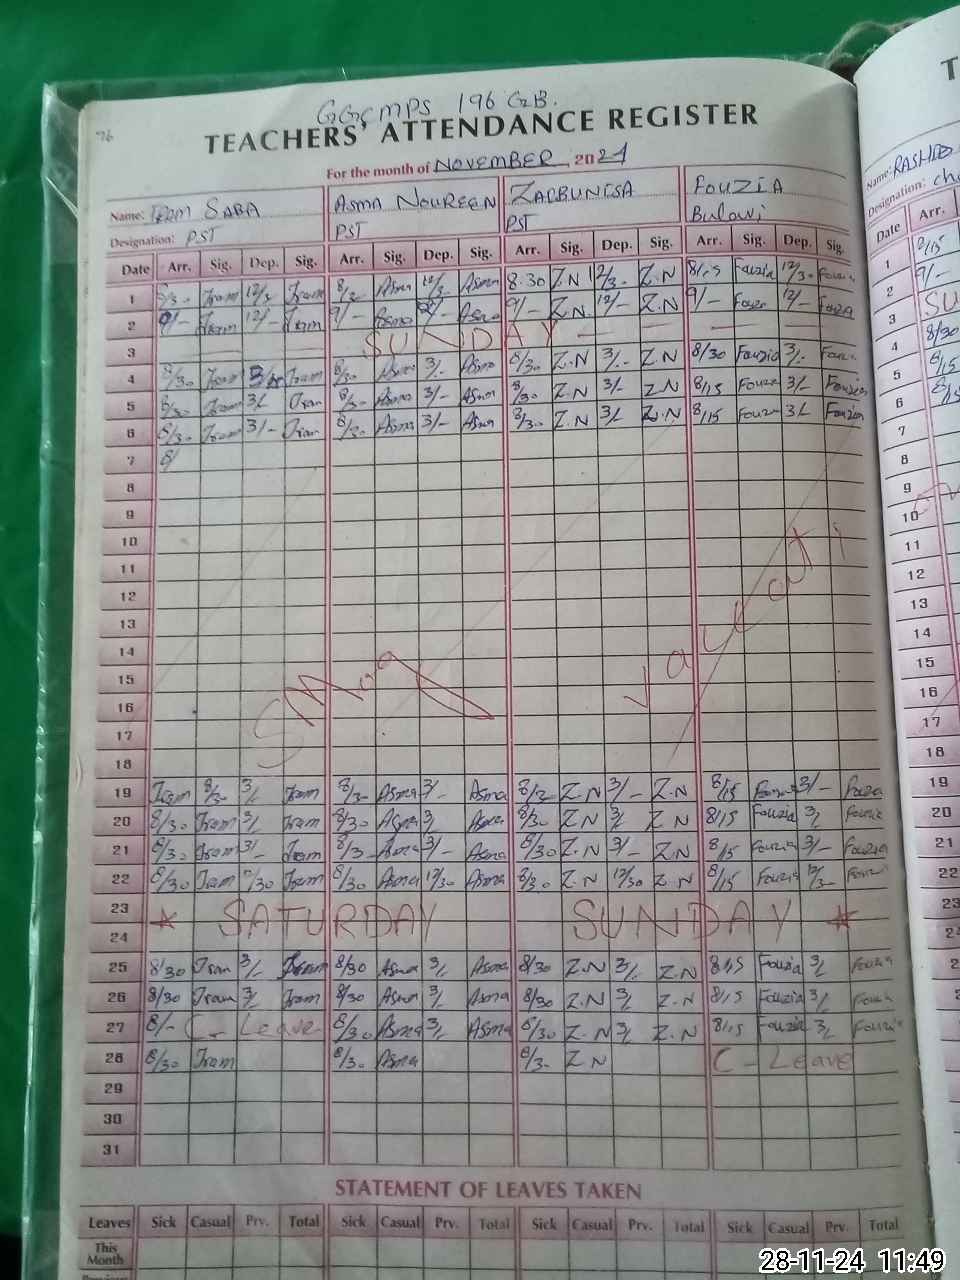 76
GGCMPS 196 GB.
TEACHERS' ATTENDANCE REGISTER
For the month of NOVEMBER 2024
Name: Iram SABA ASMA NOUREEN ZAEBUNISA FOUZIA
Designation: PST PST PST
Date Arr. Sig. Dep. Sig. Arr. Sig. Dep. Sig. Arr. Sig. Dep. Sig. Arr. Sig. Dep. Sig.
1 Iram Iram Asma Asma 8.30 Z.N Z.N 8/15 Fouzia Fouzia
2 9/- Iram 12/- Iram 9/- Asma Asma 9/- Z.N 12/- Z.N 9/- 12/-
SUNDAY
3
4 8/30 Iram Iram 8/30 Asma 3/- Asma 8/30 Z.N 3/- Z.N 8/30 Fouzia 3/-
5 8/30 Iram 3/- Iram Asma 3/- Asma 8/30 Z.N 3/- Z.N 8/15 3/- Fouzia
6 8/30 Iram 3/- Iram 8/30 Asma 3/- Asma 8/30 Z.N 3/- Z.N 8/15 3/- Fouzia
7 8/
8
9
10
11
12
13
14
15
16
17
18
Smog vacati
19 Iram 8/30 3/- Iram 8/30 Asma 3/- Asma 8/30 Z.N 3/- Z.N 8/15 3/-
20 8/30 Iram 3/- Iram 8/30 Asma 3/- Asma 8/30 Z.N 3/- Z.N 8/15 Fouzia 3/-
21 8/30 Iram 3/- Iram 8/30 Asma 3/- Asma 8/30 Z.N 3/- Z.N 8/15 Fouzia 3/- Fouzia
22 8/30 Iram 12/30 Iram 8/30 Asma 12/30 Asma 8/30 Z.N 12/30 Z.N 8/15 Fouzia 12/30
23 SATURDAY SUNDAY
24
25 8/30 Iram 3/- Iram 8/30 Asma 3/- Asma 8/30 Z.N 3/- Z.N 8/15 Fouzia 3/- Fouzia
26 8/30 Iram 3/- Iram 8/30 Asma 3/- Asma 8/30 Z.N 3/- Z.N 8/15 Fouzia 3/-
27 8/- C- Leave 8/30 Asma 3/- Asma 8/30 Z.N 3/- Z.N 8/15 Fouzia 3/-
28 8/30 Iram 8/30 Asma 8/30 Z.N C - Leave
29
30
31
STATEMENT OF LEAVES TAKEN
Leaves Sick Casual Prv. Total Sick Casual Prv. Total Sick Casual Prv. Total Sick Casual Prv. Total
This
Month
T
Name: RASHID
Designation:
Date Arr.
1 8/15
2 9/-
3 SU
4 8/30
5 8/15
6 8/15
7
8
9
10
11
12
13
14
15
16
17
18
19
20
21
22
23
28-11-24 11:49